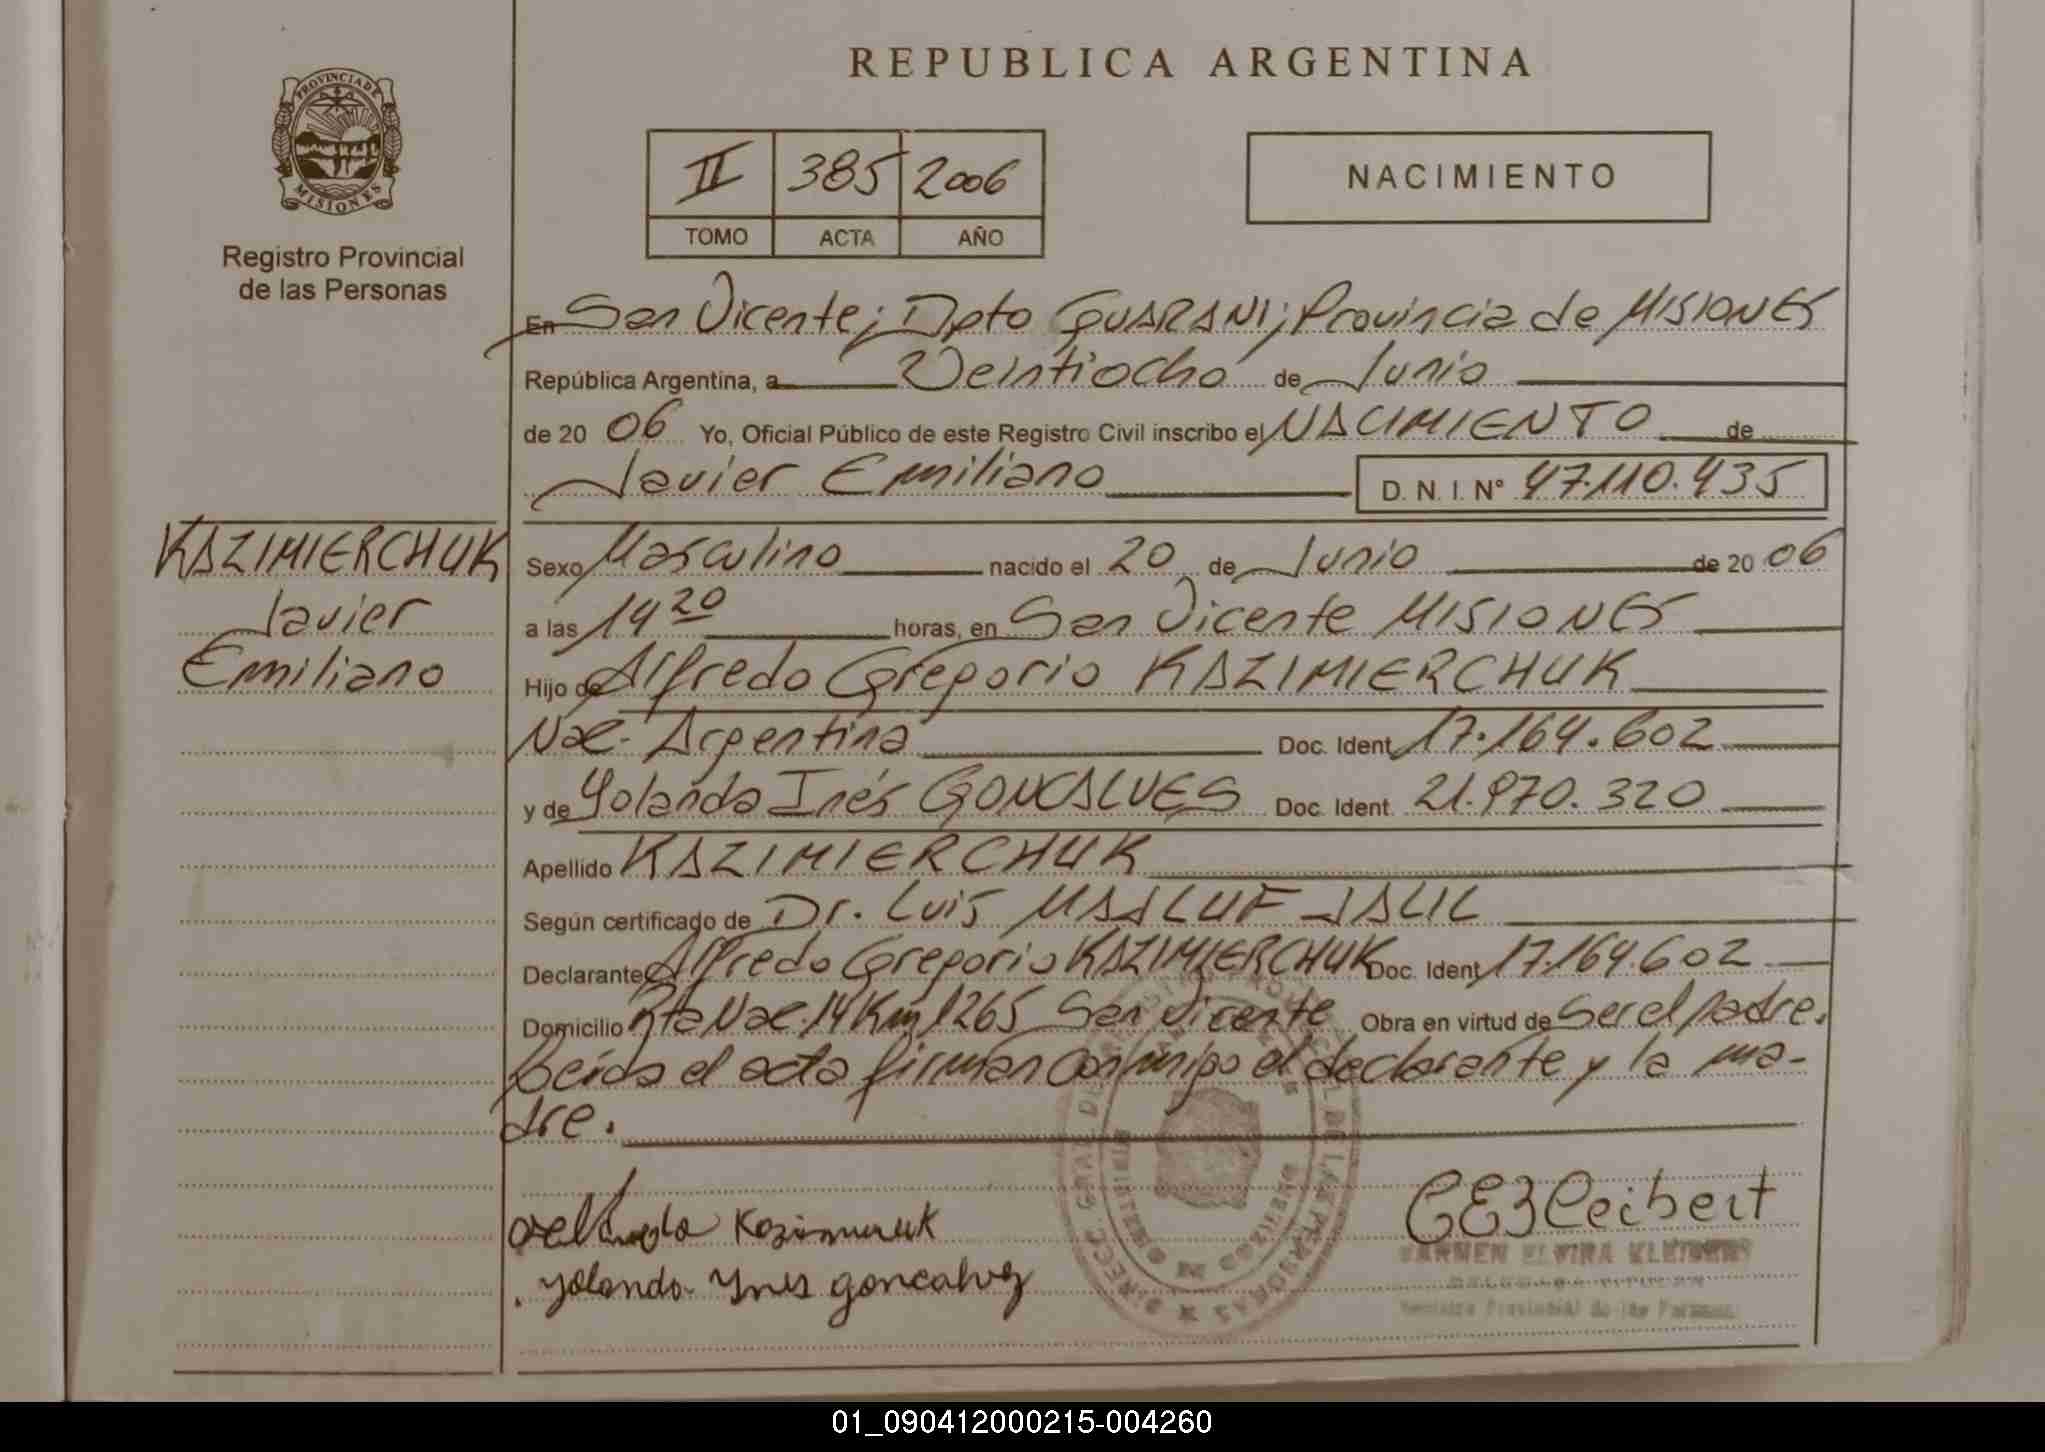 REPUBLICA ARGENTINA
PROVINCIA DE
MISIONES
Registro Provincial
de las Personas
II 385 2006
TOMO ACTA AÑO
NACIMIENTO
En San Vicente; Dpto GUARANI; Provincia de MISIONES
República Argentina, a Veintiocho de Junio
de 20 06 Yo, Oficial Público de este Registro Civil inscribo el NACIMIENTO de
Javier Emiliano D. N. I. N° 47.110.435
KAZIMIERCHUK
Javier
Emiliano
Sexo Masculino nacido el 20 de Junio de 20 06
a las 14 20 horas, en San Vicente MISIONES
Hijo de Alfredo Gregorio KAZIMIERCHUK
Nac. Argentina Doc. Ident. 17.164.602
y de Yolanda Inés GONCALVES Doc. Ident. 21.970.320
Apellido KAZIMIERCHUK
Según certificado de Dr. Luis MAALUF JALIL
Declarante Alfredo Gregorio KAZIMIERCHUK Doc. Ident. 17.164.602
Domicilio Rta Nac. 14 Km 1265 San Vicente Obra en virtud de Ser el padre.
Leída el acta firman conmigo el declarante y la ma-
dre.
Yolanda Ynes goncalvez
CARMEN ELVIRA KLEIBERT
Registro Provincial de las Personas
01_090412000215-004260